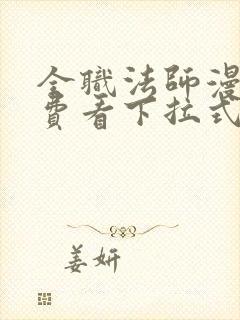 全職法師漫
費看下拉式
姜妍